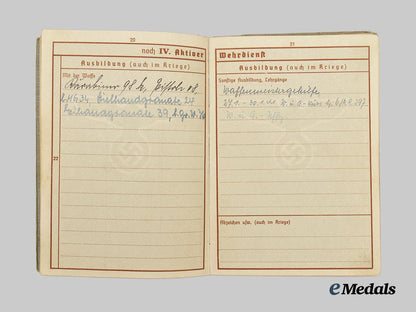 20
noch IV. Aktiver
Ausbildung (auch im Kriege)
Mit der Waffe
Karabiner 98 k, Pistole 08.
Stielhandgranate 24
Eihandgranate 39,
22
21
Wehrdienst
Ausbildung (auch im Kriege)
Sonstige Ausbildung, Lehrgänge
Waffenmeistergehilfe
Abzeichen usw. (auch im Kriege)
eMedals